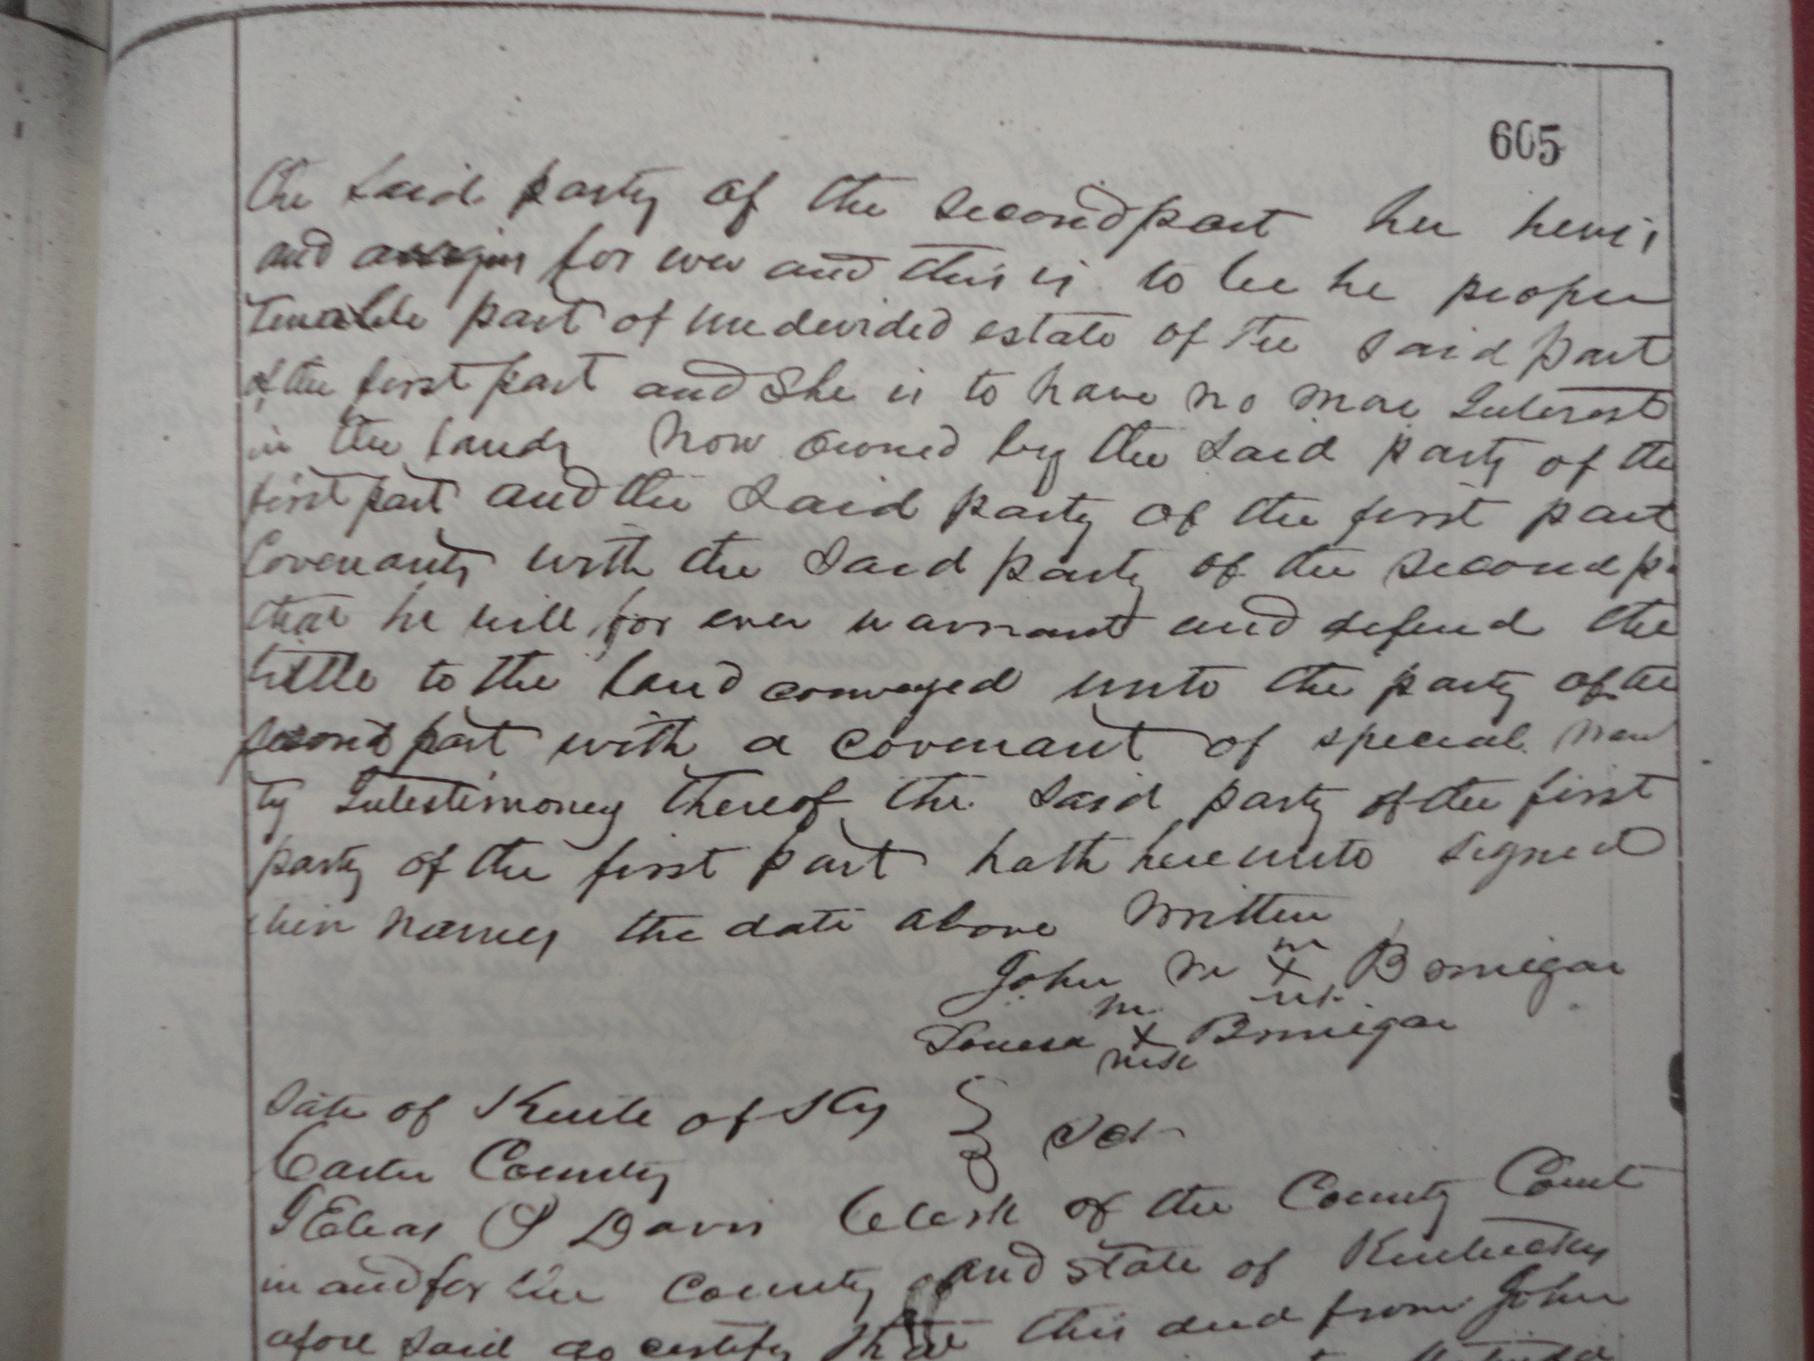 605
the said party of the second part her heirs
and assigns for ever and this is to be he proper
tenable part of undevided estate of The said part
of the first part and She is to have no more Interest
in the lands Now owned by the said party of the
first part and the said party of the first part
Covenants with the said party of the second p
that he will for ever warrant and defend the
tittle to the land conveyed unto the party of the
second part with a covenant of special
ty Intestimoney thereof the said party of the first
party of the first part hath hereunto signed
their names the date above Written
John M X Bornegar
Louesa X Bornegar
State of Kente of Ky
Carter County Sct
I Elias P Davis Clerk of the County Court
in and for the County and State of Kentucky
afore said do certify that this deed from John